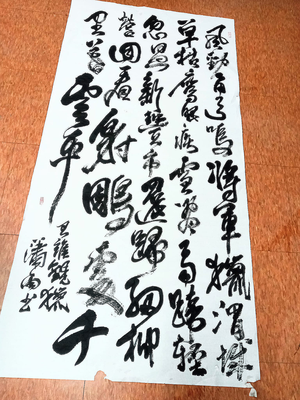 風勁角弓鳴將軍獵渭城
草枯鷹眼疾雪盡馬蹄輕
忽過新豐市還歸細柳
營回看射鵰處千
里暮雲平
王維觀獵